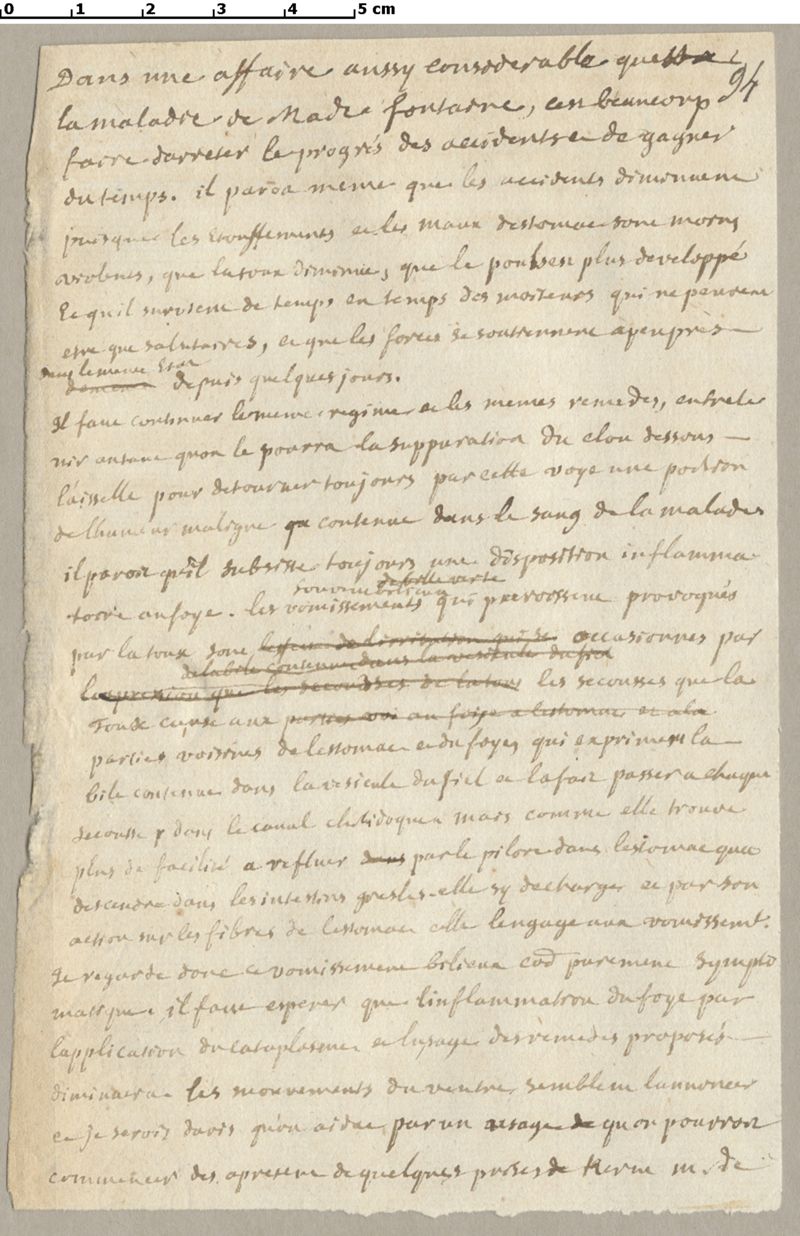 0 1 2 3 4 5 cm
94
Dans une affaire aussy considerable que
la maladie de Made fontaine, cest beaucoup
faire darreter le progrés des accidents et de gagner
du temps. il paroit meme que les accidents diminuent
puisque les etouffements et les maux destomac sont moins
violents, que la toux diminue, que le pouls est plus developpé
Et quil survient de temps en temps des moiteurs qui ne peuvent
estre que salutaires, et que les forces se soutiennent apeuprès
dans le meme Etat
depuis quelques jours.
Il faut continuer le meme regime et les memes remedes, entrete
nir autant quon le pourra la suppuration du clou dessous
l'aisselle pour detourner toujours par cette voye une portion
de lhumeur maligne contenue dans le sang de la malade
il paroit qu'il subsiste toujours une disposition inflamma
souvent bilieux de bile verte
toire au foye. les vomissements qui paroissent provoqués
par la toux sont les secousses de lirritation qui se occasionnes par
de la bile contenue dans la vesicule du fiel
la pression que les secousses de la toux les secousses que la
Toux cause aux parties voi au foye a lestomac et a la
parties voisines de lestomac et du foye, qui expriment la
bile contenue dans la vesicule du fiel et la fait passer a chaque
secousse dans le canal cholidoque mais comme elle trouve
plus de facilité a refluer dans par le pilore dans lestomac qua
descendre dans les intestins gresles elle sy decharge et par son
action sur les fibres de lestomac elle lengage aux vomissemt.
Je regarde donc ce vomissement bilieux purement sympto
matique. il faut esperer que l'inflammation du foye par
lapplication du cataplasme et lusage des remedes proposés
diminuera les mouvements du ventre semblent lannoncer
et Je serois davis qu'on aidat par un usage de quon pourroit
commencer des apresent de quelques prises de Kerm m. de